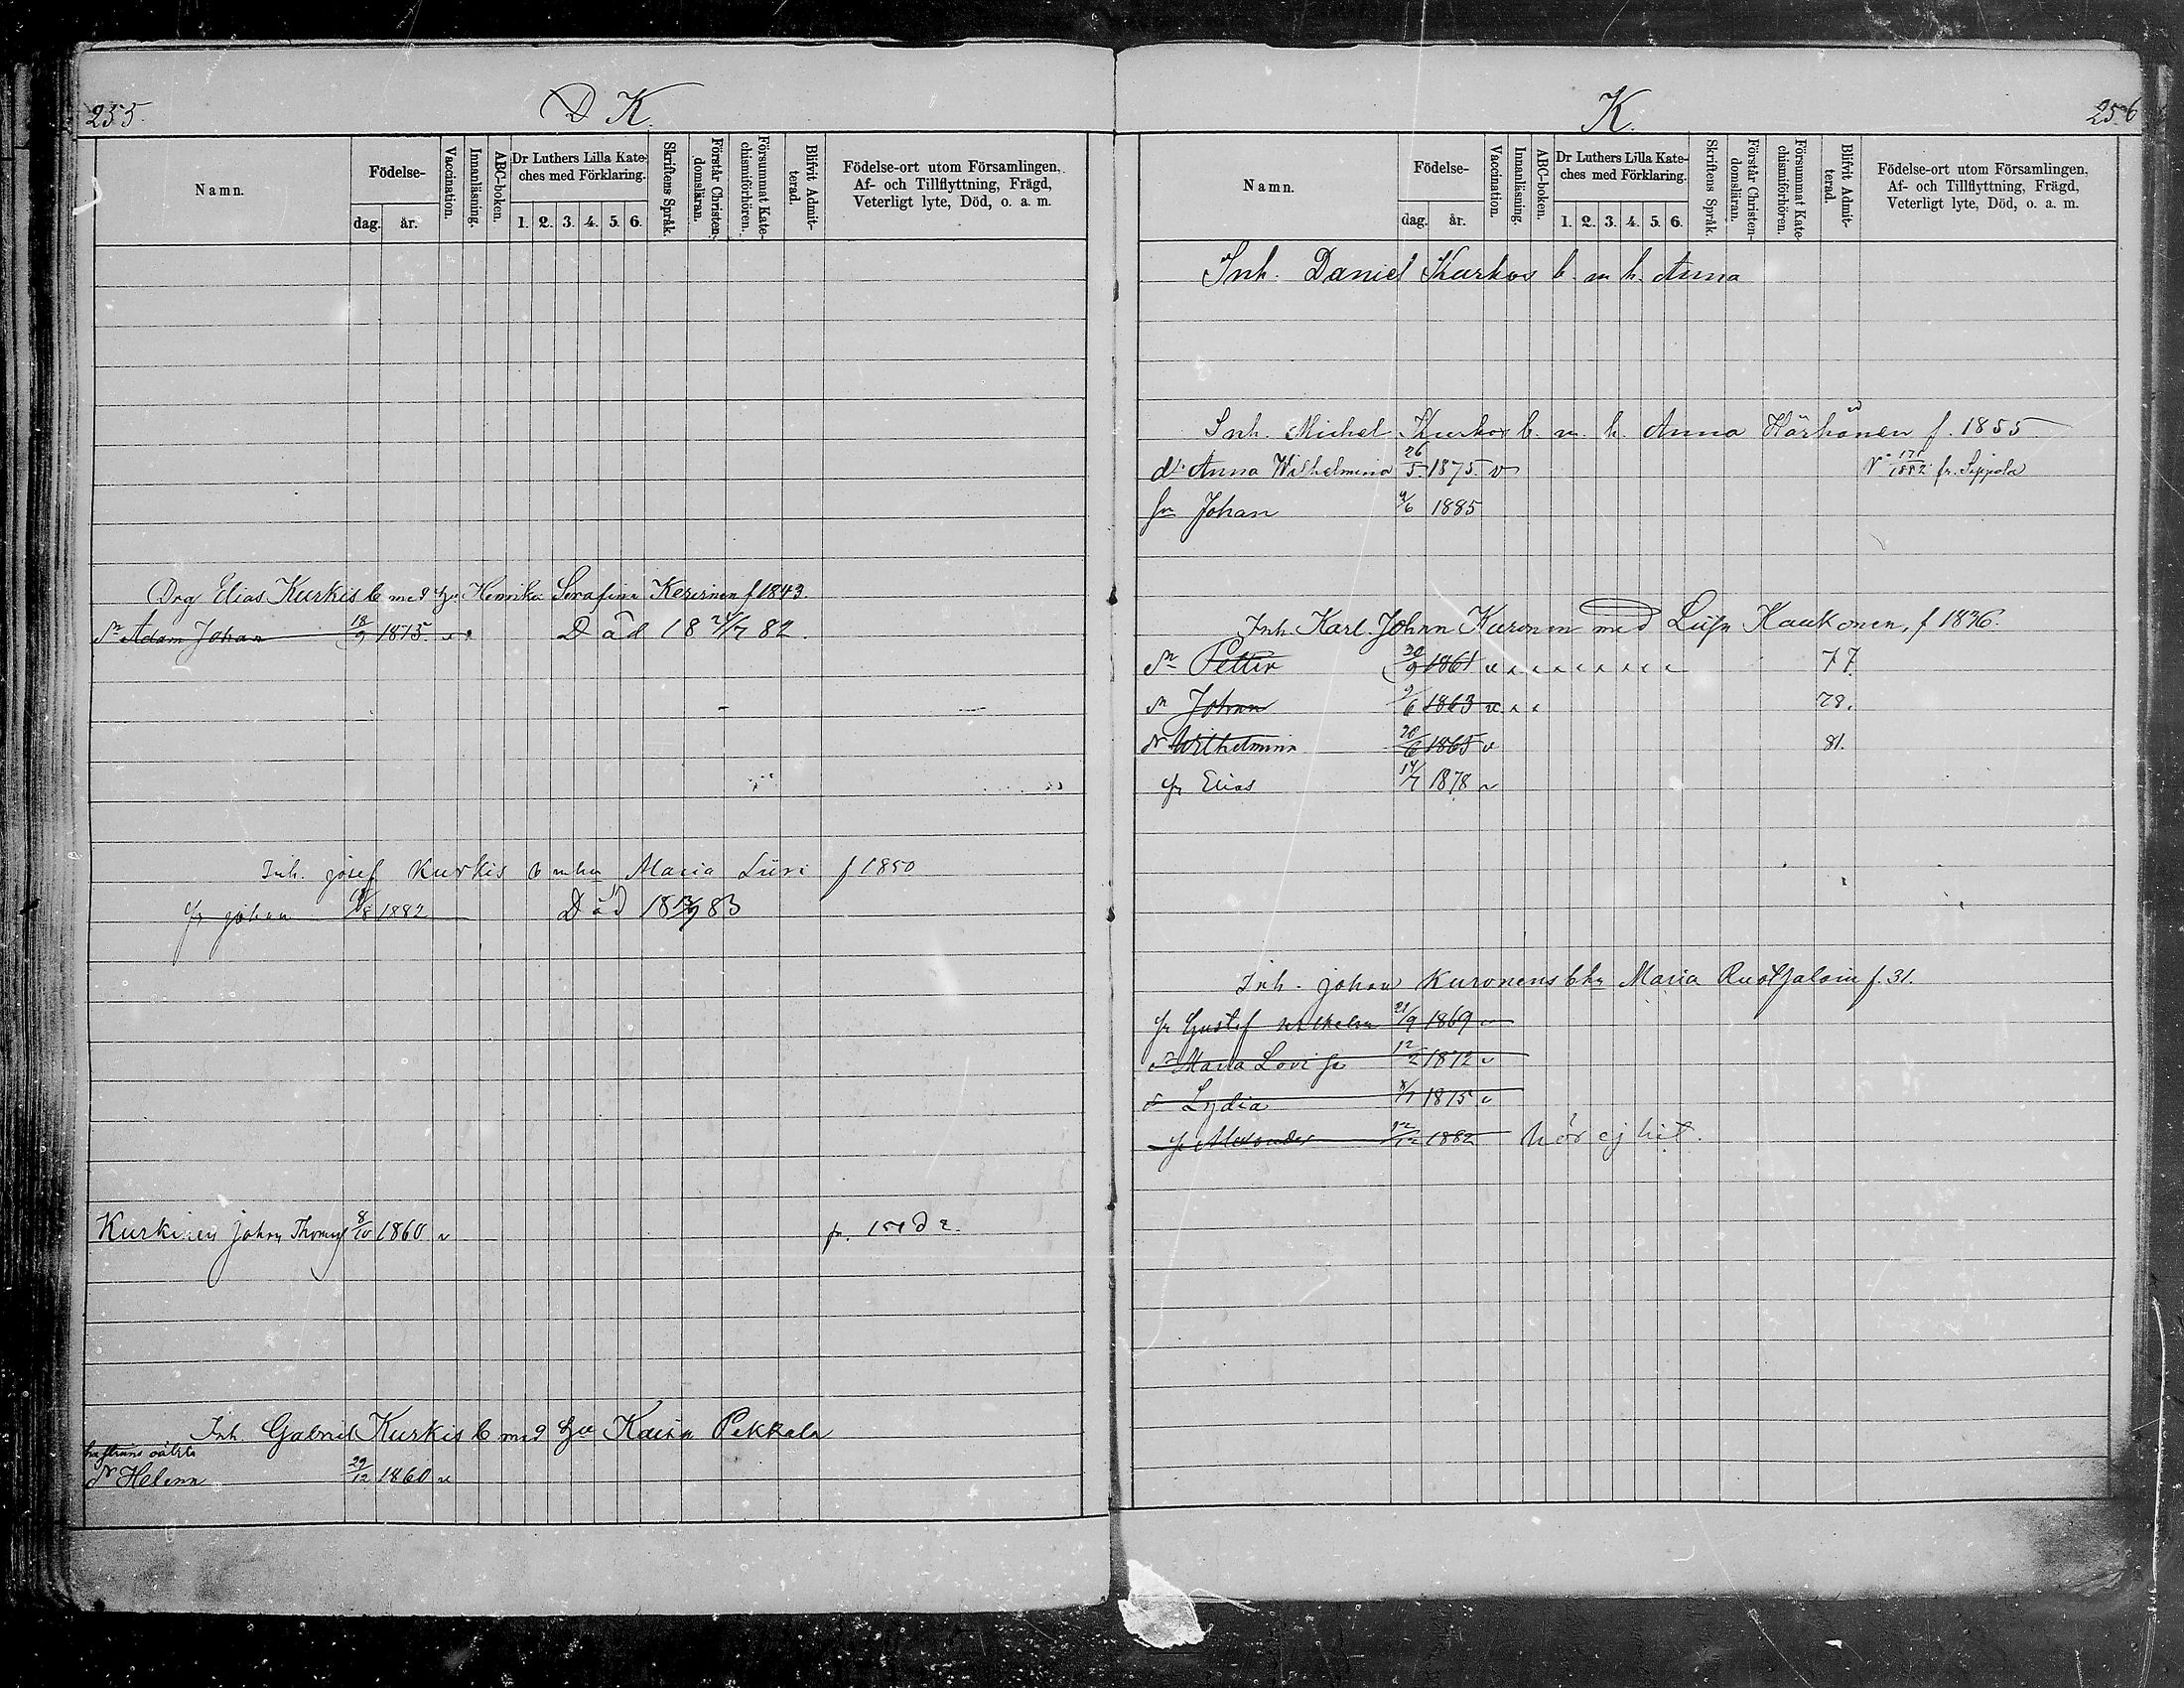 255.
D K.
Namn.
Födelse-
dag.
år.
Vaccination.
Innanläsning.
ABC-boken.
Dr Luthers Lilla Kate-
ches med Förklaring.
1. 2. 3. 4. 5. 6.
Skriftens Språk.
Förstår Christen-
domsläran.
Försummat Kate-
chismiförhören.
Blifvit Admit-
terad.
Födelse-ort utom Församlingen,
Af- och Tillflyttning, Frägd,
Veterligt lyte, Död, o. a. m.
Drg Elias Kurkis b med Henrika Serafina f 1843.
Sn Adam Johan 18/9 1875. Död 18 /7 82.
Inh. josef Kurkis b mhu Maria f 1850
johan /8 1882 Död 18 83
Kurkinen johan Thomas 8/10 1860 v fr.
Inh. Gabriel Kurkis b med Kaisa Pekkala
Dr Helena 29/12 1860 v
K.
256
Namn.
Födelse-
dag.
år.
Vaccination.
Innanläsning.
ABC-boken.
Dr Luthers Lilla Kate-
ches med Förklaring.
1. 2. 3. 4. 5. 6.
Skriftens Språk.
Förstår Christen-
domsläran.
Försummat Kate-
chismiförhören.
Blifvit Admit-
terad.
Födelse-ort utom Församlingen,
Af- och Tillflyttning, Frägd,
Veterligt lyte, Död, o. a. m.
Inh. Daniel Kurkos b. m h. Anna
Inh. Michel Kurkos b. m. h. Anna Härkönen f. 1855
dr Anna Wilhelmina 26/5 1875 v 1882 fr. Sippola
Sn Johan /6 1885
Inh. Karl Johan Kuronen med Kaukonen, f 1836.
Sn Petter 30/9 1861 v 77.
Sn Johan 9/6 1863 v 78.
dr Wilhelmina 20/6 1865 v 81.
Elias 14/7 1878 v
Inh. johan Kuronens Maria f. 31.
Gustaf Wilhelm 21/9 1869 v
Maria Lovisa 12/2 1872 v
Lydia 8/7 1875 v
Alexander 12/12 1882 hör ej hit.